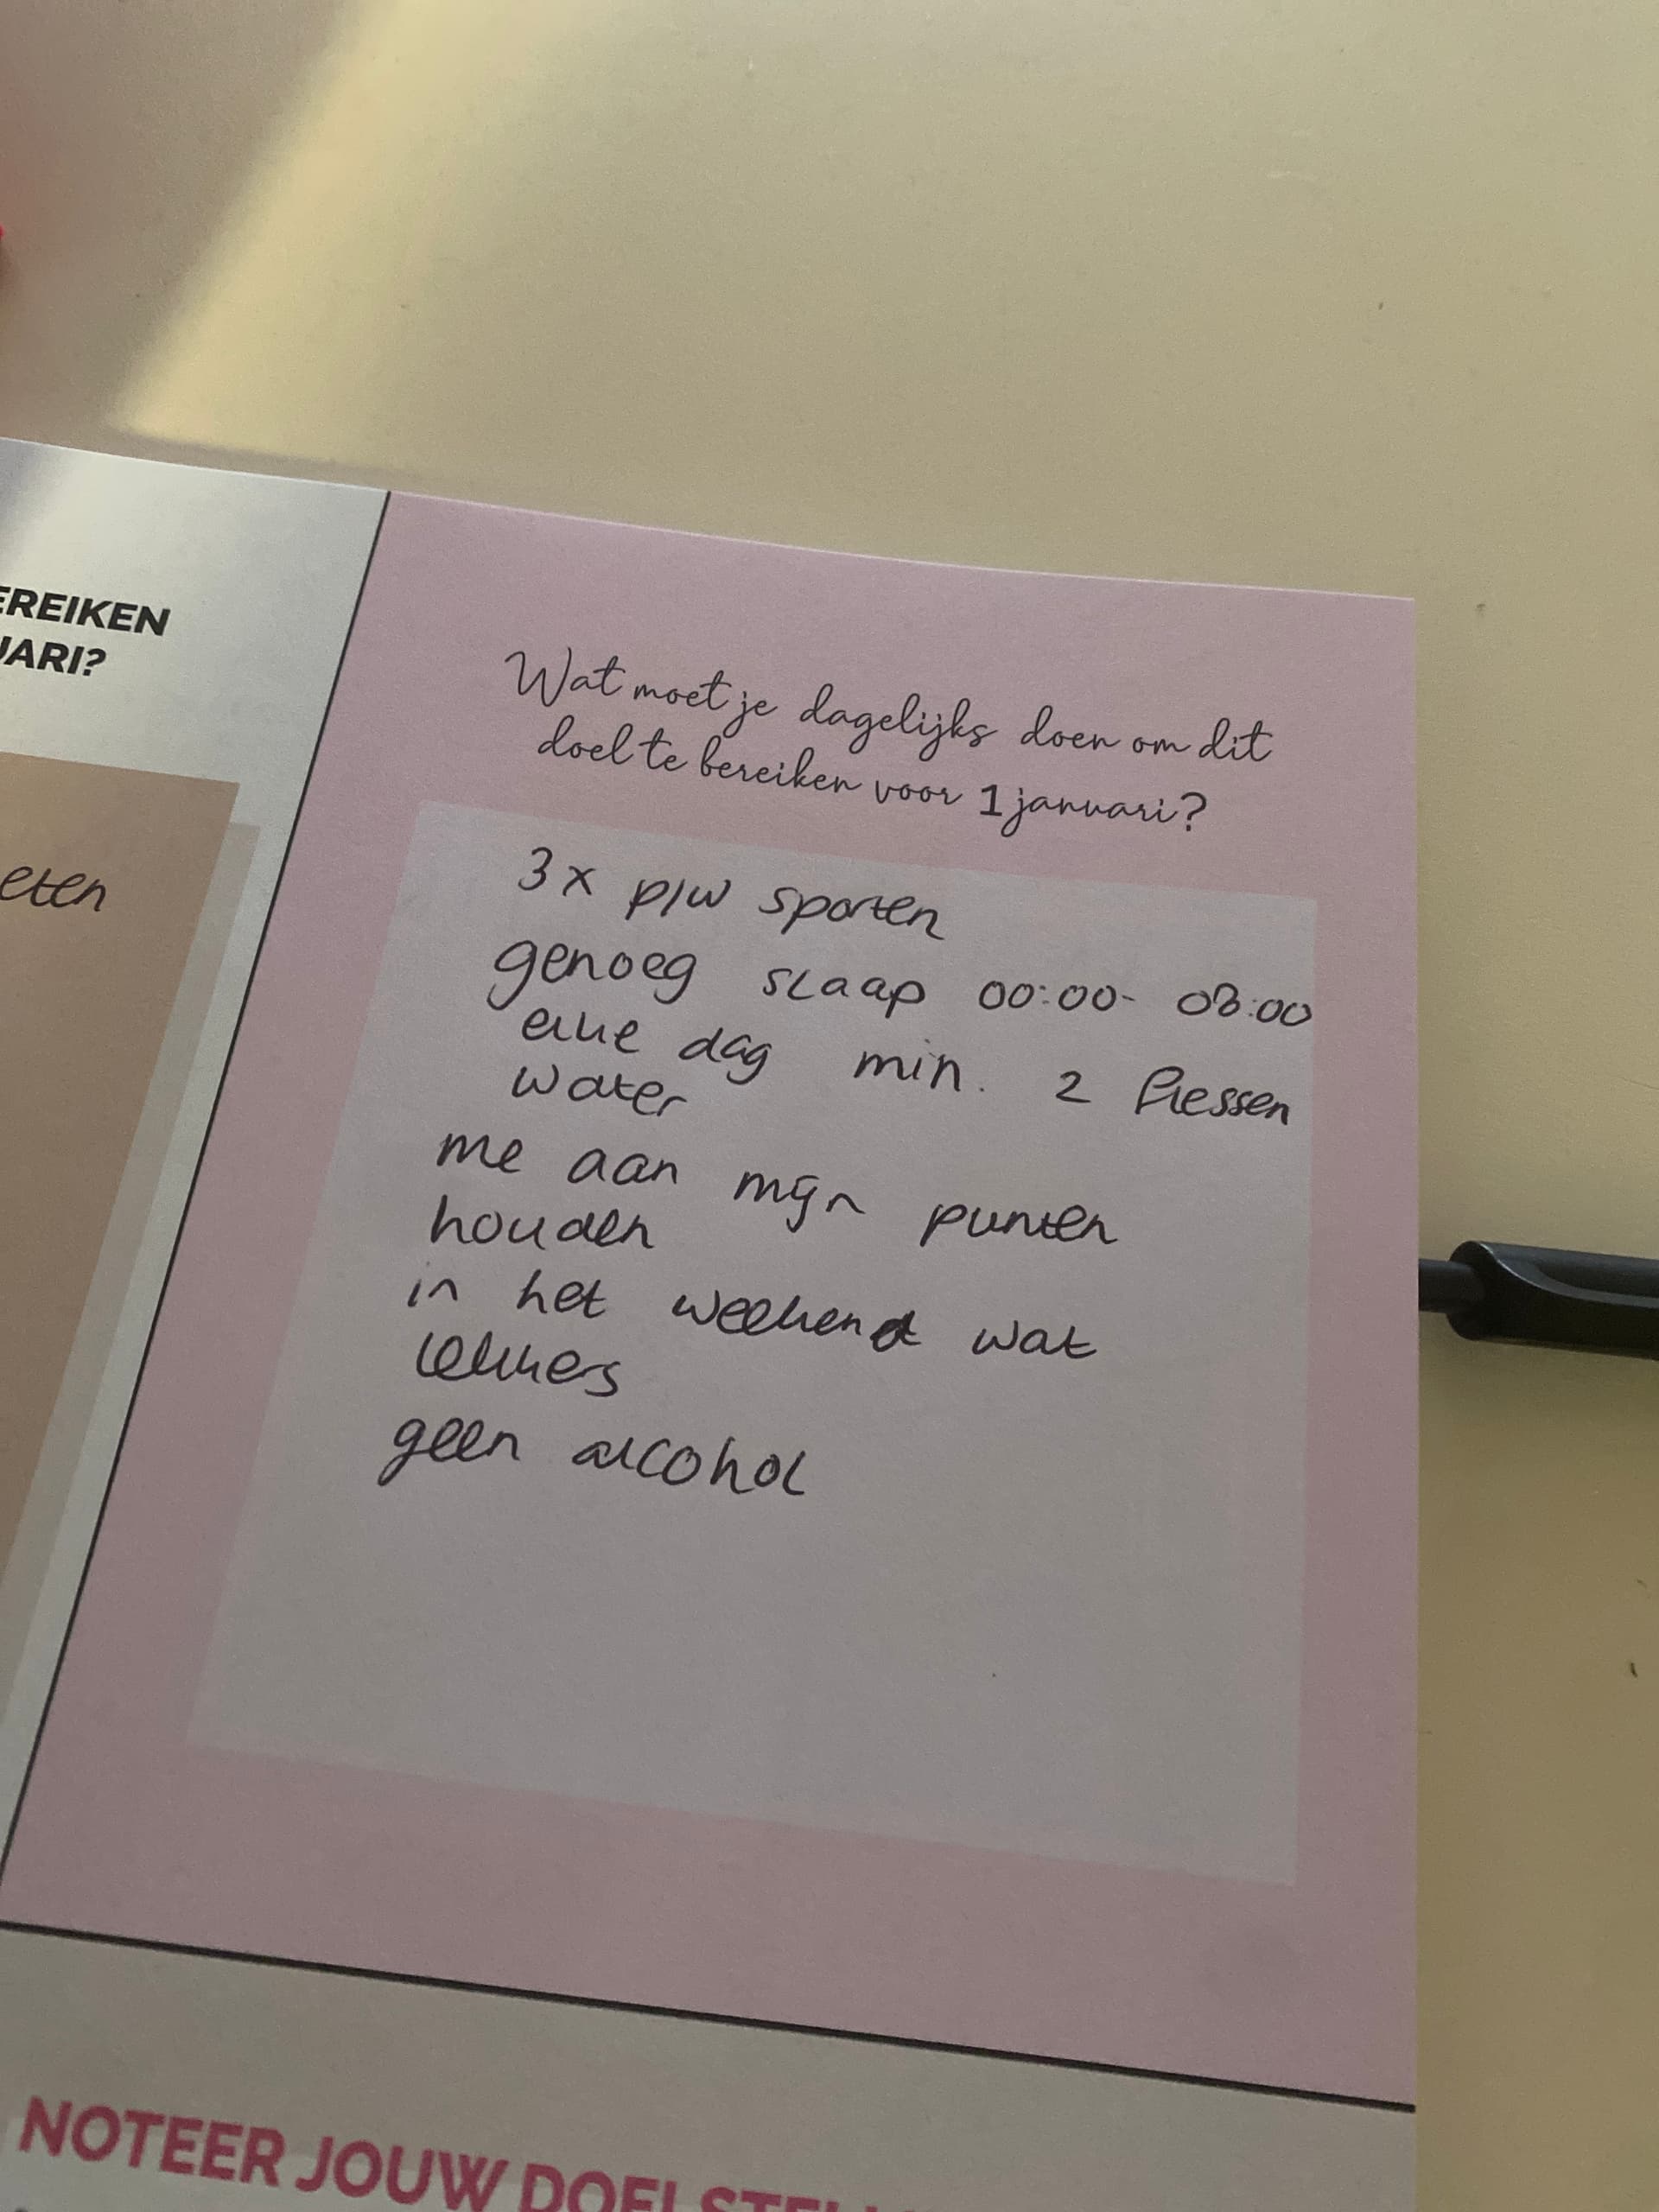 EREIKEN
UARI?
eten
Wat moet je dagelijks doen om dit
doel te bereiken voor 1 januari?
3x p/w sporten
genoeg slaap 00:00- 08:00
elke dag min. 2 flessen
water
me aan mijn punten
houden
in het weekend wat
lekkers
geen alcohol
NOTEER JOUW DOELSTELL